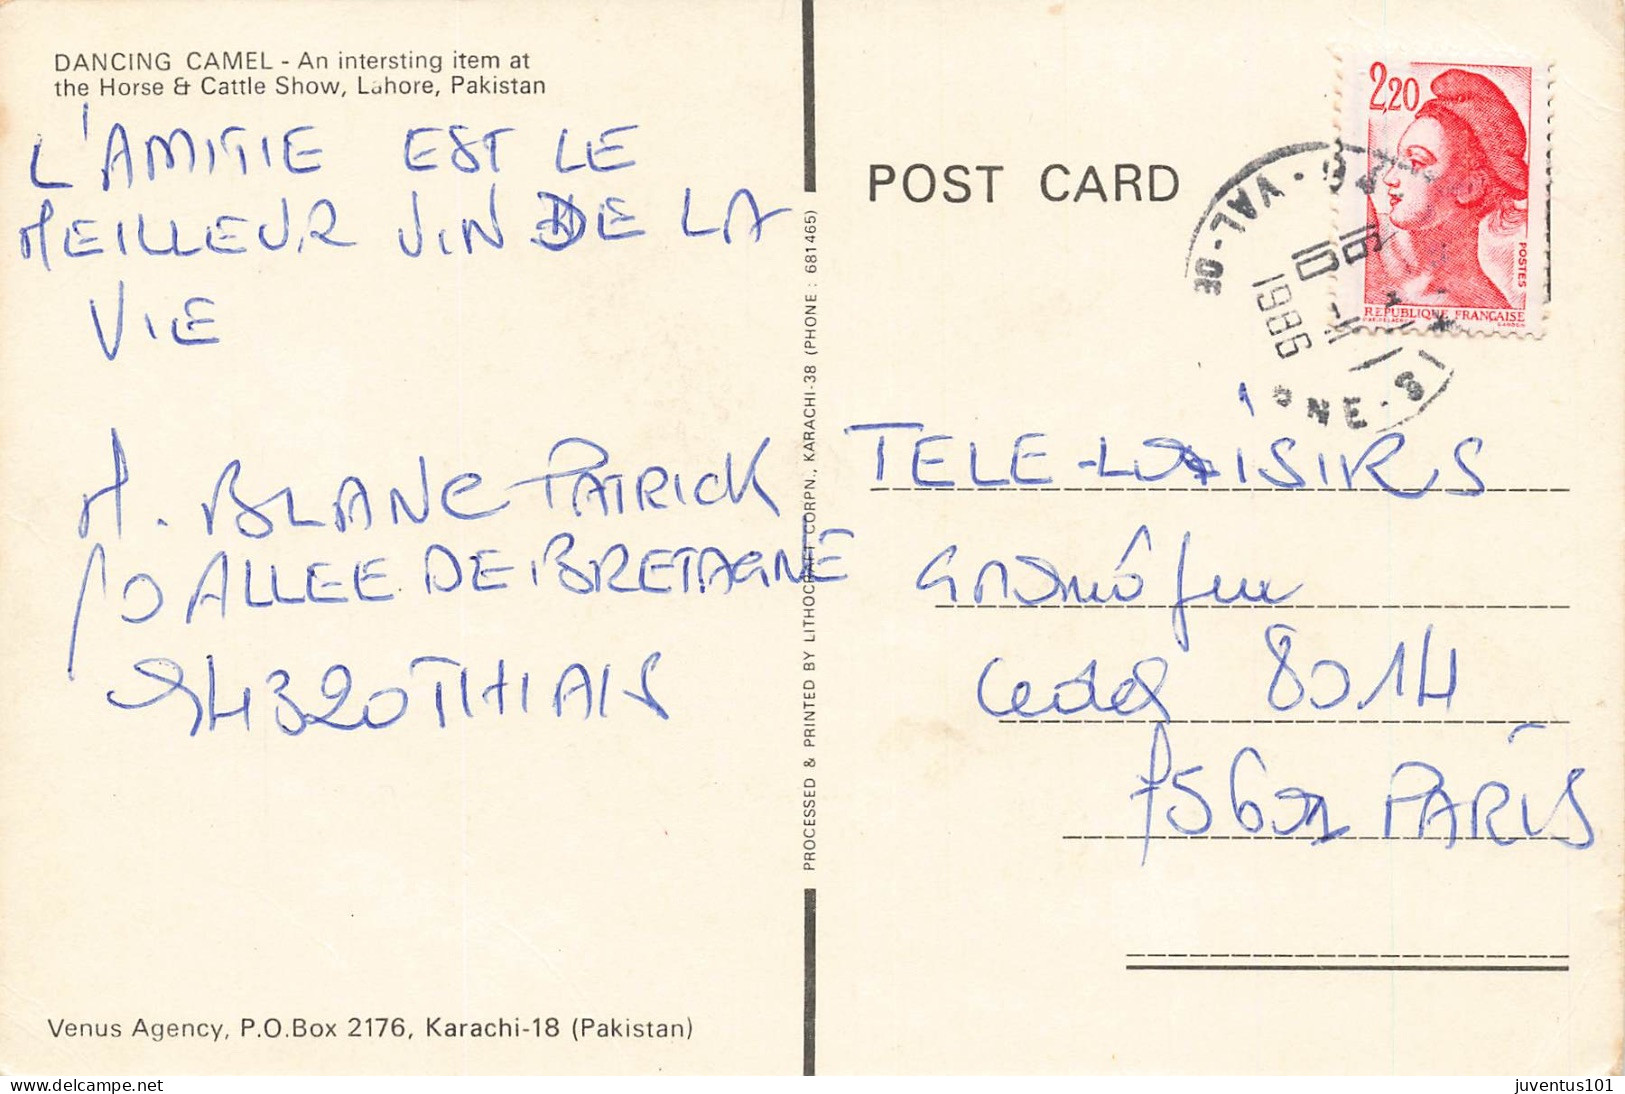 DANCING CAMEL - An intersting item at
the Horse & Cattle Show, Lahore, Pakistan
L'AMITIE EST LE
MEILLEUR VIN DE LA
VIE
M. BLANC PATRICK
10 ALLEE DE BRETAGNE
94320 THIAIS
Venus Agency, P.O.Box 2176, Karachi-18 (Pakistan)
PROCESSED & PRINTED BY LITHOCRAFT CORPN., KARACHI-38 (PHONE : 681465)
POST CARD
2,20
POSTES
REPUBLIQUE FRANÇAISE
GANDON
VAL-DE
16
10
1986
NE-S
TELE-LOISIRS
Cedex 8014
75601 PARIS
juventus101